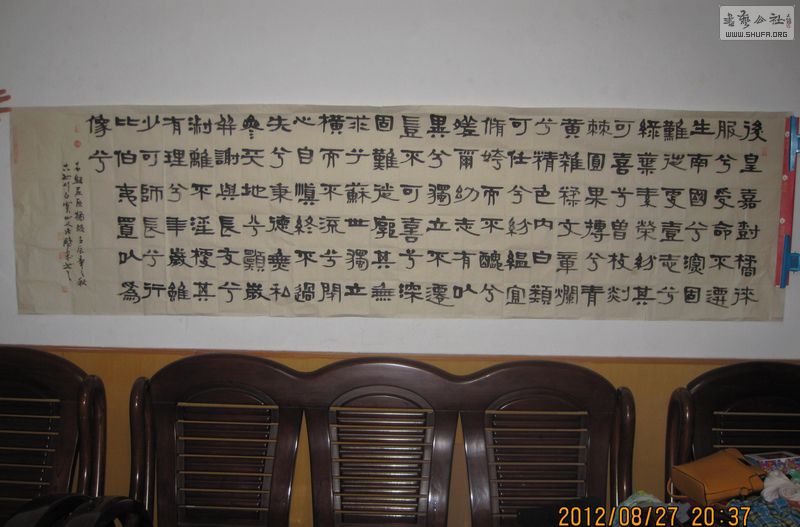 後皇嘉尌橘徠
服兮受命不遷
生南國兮深固
難徙更壹志兮
綠葉素榮紛其
可喜兮曾枝剡
棘圓果摶兮青
黃雜糅文章爛
兮精色內白類
可任兮紛緼宜
脩姱而不醜兮
嗟爾幼志有以
異兮獨立不遷
豈不可喜兮深
固難徙廓其無
求兮蘇世獨立
橫而不流兮閉
心自慎終不過
失兮秉德無私
參天地兮願歲
并謝與長友兮
淑離不淫梗其
有理兮年歲雖
少可師長兮行
比伯夷置以為
像兮
右録屈原橘頌壬辰年之秋
書藝公社
WWW.SHUFA.ORG
2012/08/27 20:37